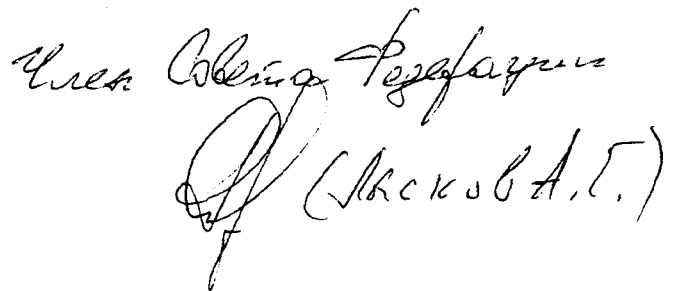 Член Совета Федерации
(Лысков А.Г.)